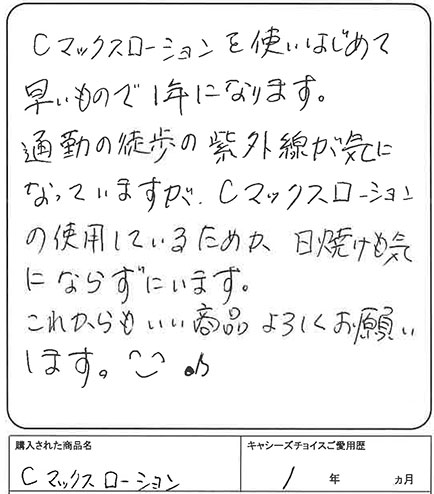 Cマックスローションを使いはじめて
早いもので1年になります。
通勤の徒歩の紫外線が気に
なっていますが、Cマックスローション
の使用しているためか、日焼けも気
にならずにいます。
これからもいい商品よろしくお願い
します。
購入された商品名
キャシーズチョイスご愛用歴
Cマックスローション
1年 ヵ月